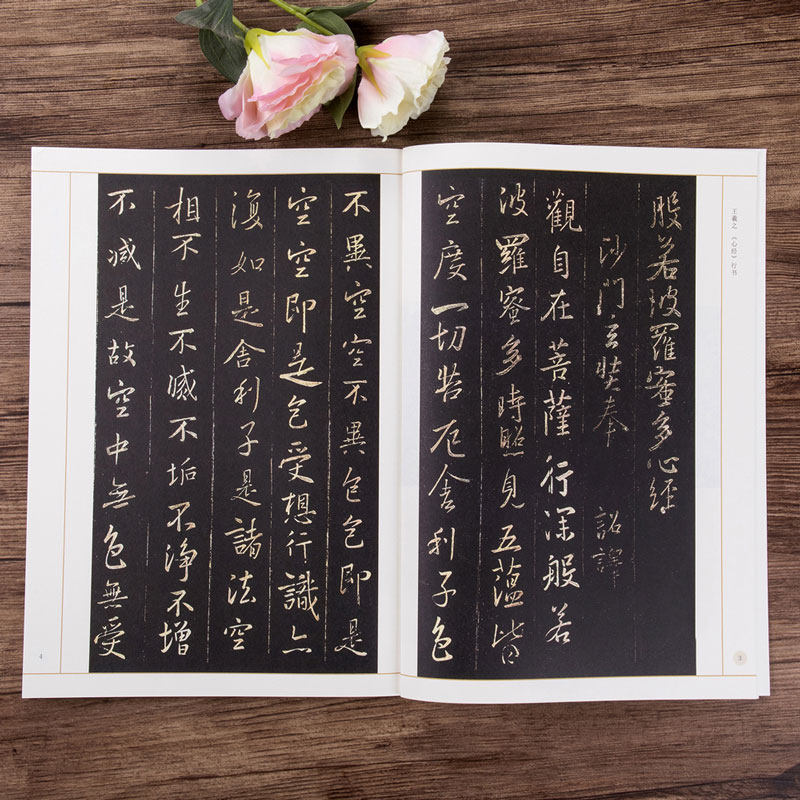 般若波羅蜜多心經
沙門玄奘奉 詔譯
觀自在菩薩行深般若
波羅蜜多時照見五蘊皆
空度一切苦厄舍利子色
王羲之《心经》行书
3
不異空空不異色色即是
空空即是色受想行識亦
復如是舍利子是諸法空
相不生不滅不垢不淨不增
不減是故空中無色無受
4